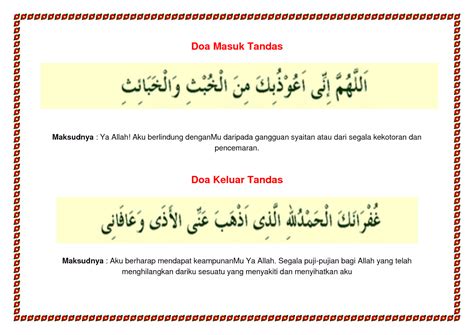 Doa Masuk Tandas
اَللَّهُمَّ إِنِّى اَعُوْذُبِكَ مِنَ الْخُبْثِ وَالْخَبَائِثِ
Maksudnya : Ya Allah! Aku berlindung denganMu daripada gangguan syaitan atau dari segala kekotoran dan
pencemaran.
Doa Keluar Tandas
غُفْرَانَكَ الْحَمْدُللهِ الَّذِى اَذْهَبَ عَنِّى الأَذَى وَعَافَانِى
Maksudnya : Aku berharap mendapat keampunanMu Ya Allah. Segala puji-pujian bagi Allah yang telah
menghilangkan dariku sesuatu yang menyakiti dan menyihatkan aku